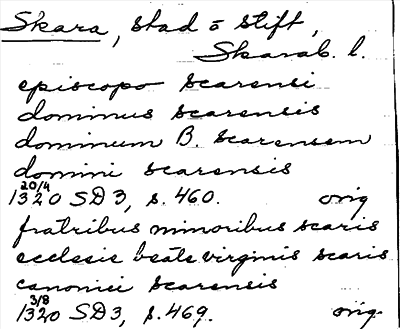 Skara, stad o stift,
Skarab. l.
episcopo scarensi
dominus scarensis
dominum B. scarensem
domini scarensis
1320 20/4 SD 3, s. 460. orig
fratribus minoribus scaris
ecclesie beate virginis scaris
canonici scarensis
1320 3/8 SD 3, s. 469. orig.